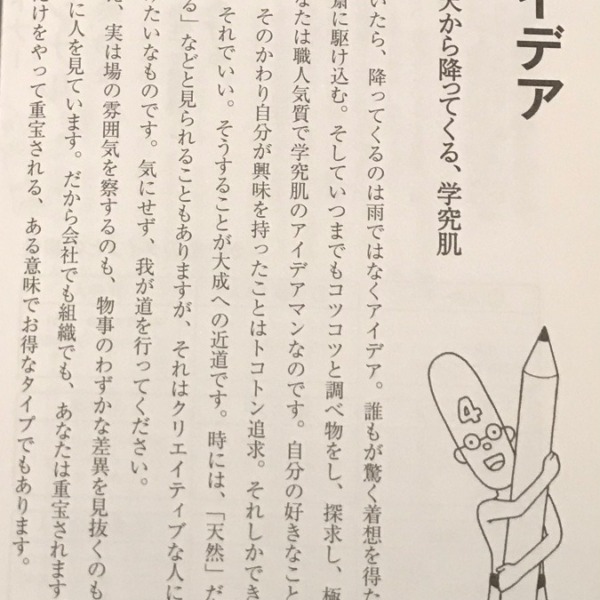 イデア
天から降ってくる、学究肌
いたら、降ってくるのは雨ではなくアイデア。誰もが驚く着想を得た
に駆け込む。そしていつまでもコツコツと調べ物をし、探求し、極
なたは職人気質で学究肌のアイデアマンなのです。自分の好きなこと
そのかわり自分が興味を持ったことはトコトン追求。それしかでき
それでいい。そうすることが大成への近道です。時には、「天然」だ
る」などと見られることもありますが、それはクリエイティブな人に
みたいなものです。気にせず、我が道を行ってください。
、実は場の雰囲気を察するのも、物事のわずかな差異を見抜くのも
に人を見ています。だから会社でも組織でも、あなたは重宝されます
だけをやって重宝される、ある意味でお得なタイプでもあります。
4